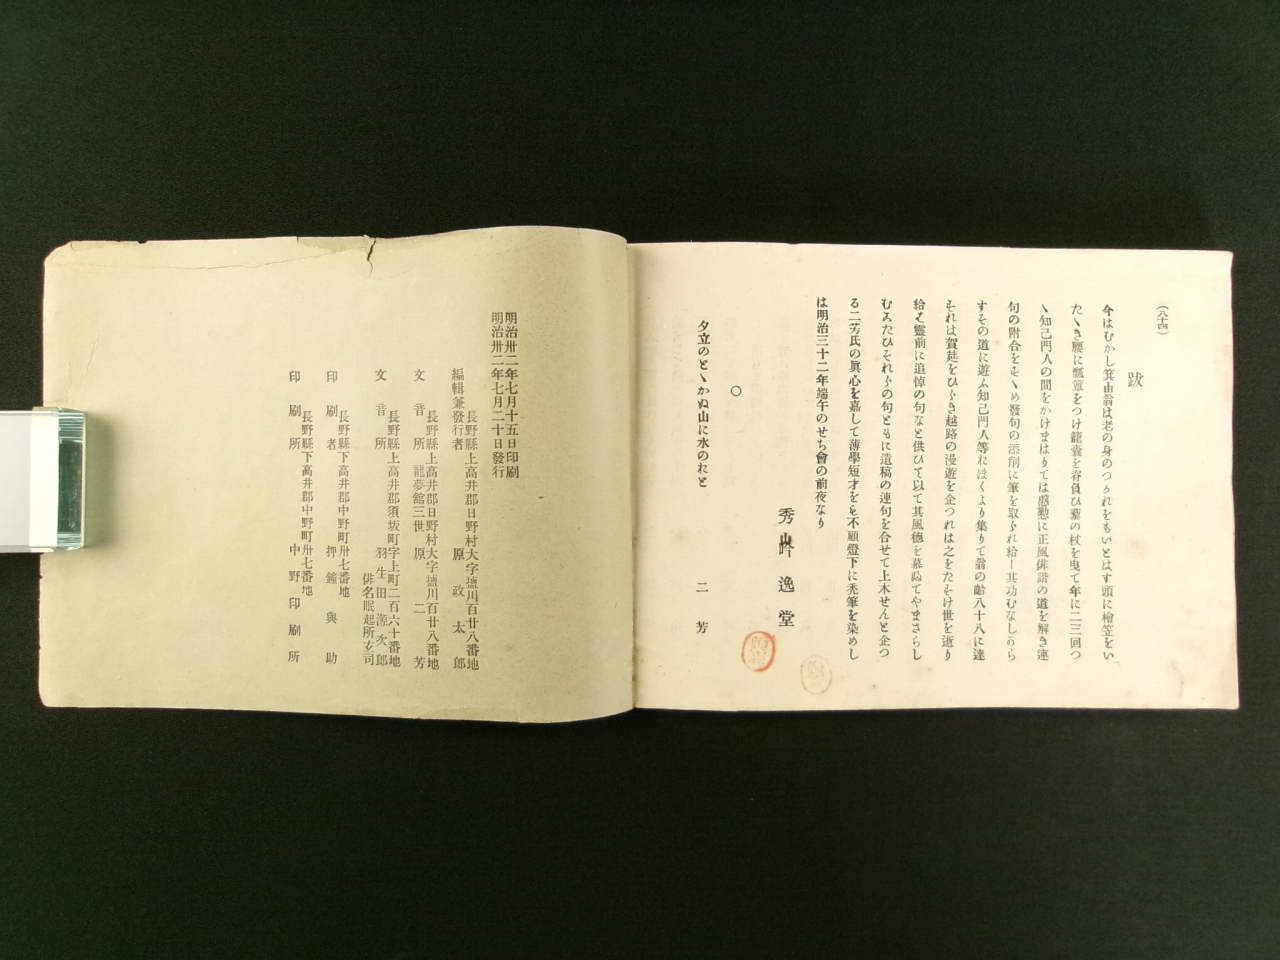 (八十四)
跋
今はむかし箕由翁は老の身のつゝれをもいとはす頭に檜笠をい
たゝき腰に瓢簞をつけ籠嚢を脊負ひ藜の杖を曳て年に二三回つ
ゝ知己門人の間をかけまはりては慇懃に正風俳諧の道を解き連
句の附合をすゝめ發句の添削に筆を取られ給ー其功むなしから
すその道に遊ふ知己門人等おほくより集りて翁の齡八十八に達
それは賀莚をひらき越路の漫遊を企つれは之をたすけ世を逝り
給て靈前に追悼の句なと供ひて以て其風德を慕ぬてやまさらし
むまたひそれらの句ともに遺稿の連句を合せて上木せんと企つ
る二芳氏の眞心を嘉して薄學短才をも不顧燈下に禿筆を染めし
は明治三十二年端午のせち會の前夜なり
秀山吟逸堂
○
夕立のとゝかぬ山に水のおと
二芳
明治卅二年七月十五日印刷
明治卅二年七月二十日發行
長野縣上高井郡日野村大字塩川百廿八番地
編輯兼發行者 原政太郎
長野縣上高井郡日野村大字塩川百廿八番地
文音所 龍夢舘三世 原二芳
長野縣上高井郡須坂町字上町二百六十番地
文音所 羽生田源次郎
俳名眠起所玄司
長野縣下高井郡中野町卅七番地
印刷者 押鐘與助
長野縣下高井郡中野町卅七番地
印刷所 中野印刷所